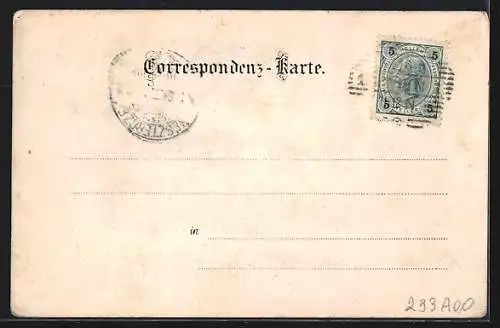 Correspondenz-Karte.
5 5
5 5
in
233A00